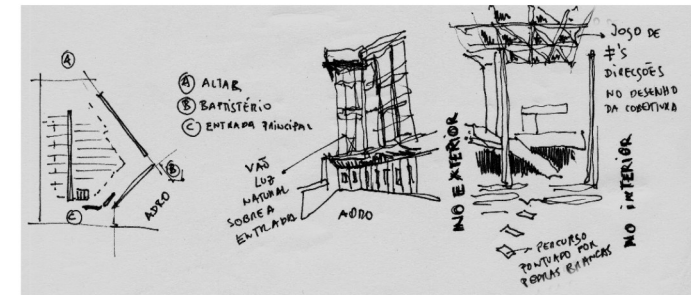 A
A ALTAR
B BAPTISTÉRIO
C ENTRADA PRINCIPAL
B
ADRO
C
VÃO
LUZ
NATURAL
SOBRE A
ENTRADA
ADRO
NO EXTERIOR
JOGO DE
≠'S
DIRECÇÕES
NO DESENHO
DA COBERTURA
NO INTERIOR
PERCURSO
PONTUADO POR
PEDRAS BRANCAS